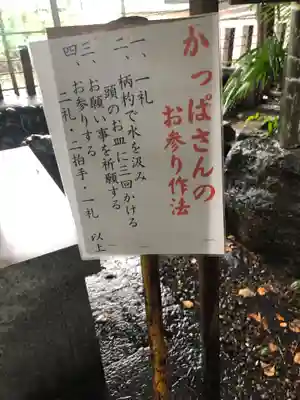 かっぱさんの
お参り作法
一、一礼
二、柄杓で水を汲み
頭のお皿に三回かける
三、お願い事を祈願する
四、お参りする
二礼・二拍手・一礼
以上